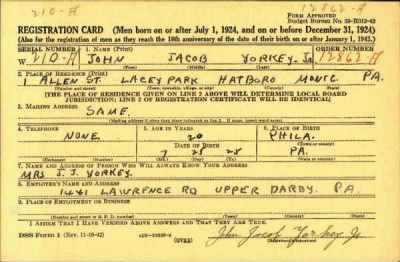 210-A
12862-A
FORM APPROVED
Budget Bureau No. 33-R012-42
REGISTRATION CARD (Men born on or after July 1, 1924, and on or before December 31, 1924)
(Also for the registration of men as they reach the 18th anniversary of the date of their birth on or after January 1, 1943.)
SERIAL NUMBER 1. NAME (Print) ORDER NUMBER
W 210-A JOHN JACOB YORKEY Jr 12862-A
(First) (Middle) (Last)
2. PLACE OF RESIDENCE (Print)
1 ALLEN ST. LACEY PARK HATBORO MONTG PA.
(Number and street) (Town, township, village, or city) (County) (State)
[THE PLACE OF RESIDENCE GIVEN ON LINE 2 ABOVE WILL DETERMINE LOCAL BOARD
JURISDICTION; LINE 2 OF REGISTRATION CERTIFICATE WILL BE IDENTICAL]
3. MAILING ADDRESS
SAME
4. TELEPHONE 5. AGE IN YEARS 6. PLACE OF BIRTH
NONE. 20 PHILA.
DATE OF BIRTH (Town or county)
7 25 25 PA.
(Exchange) (Number) (Mo.) (Day) (Yr.) (State or country)
7. NAME AND ADDRESS OF PERSON WHO WILL ALWAYS KNOW YOUR ADDRESS
MRS J. J. YORKEY
8. EMPLOYER'S NAME AND ADDRESS
1441 LAWRENCE RD UPPER DARBY. PA.
9. PLACE OF EMPLOYMENT OR BUSINESS
(Number and street or R. F. D. number) (Town) (County) (State)
I AFFIRM THAT I HAVE VERIFIED ABOVE ANSWERS AND THAT THEY ARE TRUE.
DSS Form 1 (Rev. 11-16-42) (OVER) John Jacob Yorkey Jr